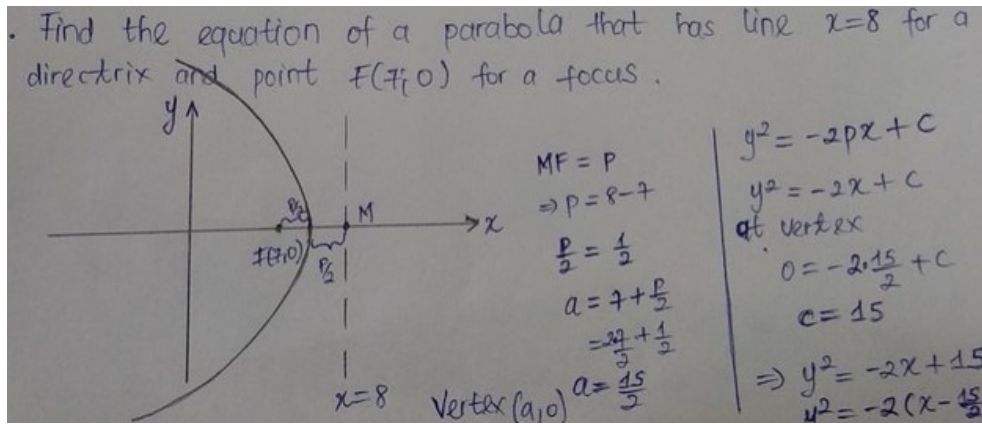 . Find the equation of a parabola that has line x=8 for a
directrix and point F(7;0) for a focus.
y
x
M
P/2
F(7,0)
P/2
x=8
MF = P
⇒ P = 8-7
P/2 = 1/2
a = 7 + P/2
+ 1/2
a = 15/2
Vertex (a,0)
y² = -2px + C
y² = -2x + C
at vertex
0 = -2·15/2 + C
C = 15
⇒ y² = -2x + 15
y² = -2(x - 15/2